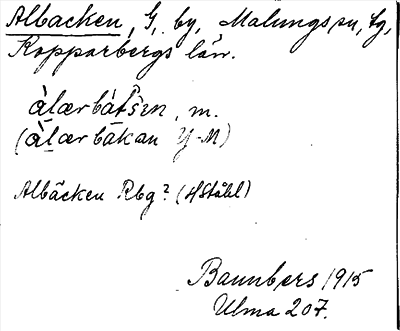 Albacken, G, by, Malungs sn, sg,
Kopparbergs län.
àlær bàtšɪn, m.
(àlær bākan Y-M)
Albäcken Rbg? (HStåhl)
Baunbers 1915
Ulma 207.